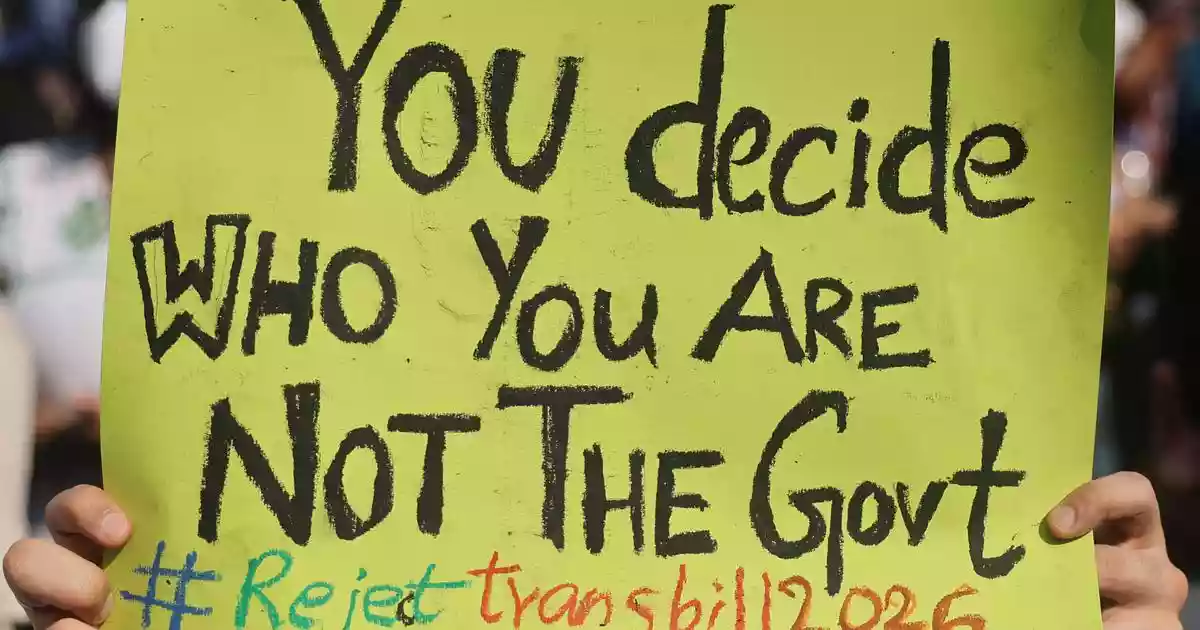 You decide
WHO YOU ARE
NOT THE Govt
#Reject transbill2026